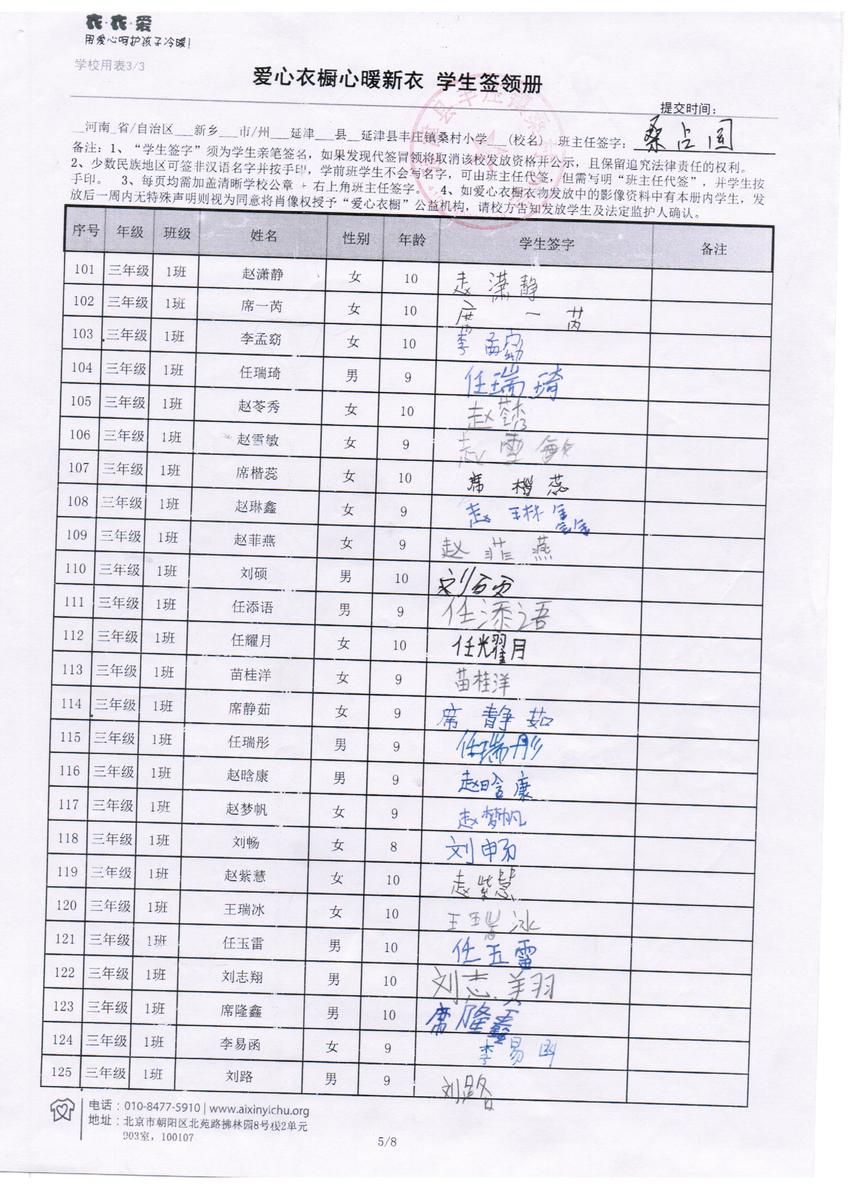 衣·衣·爱
用爱心呵护孩子冷暖!
学校用表3/3
爱心衣橱心暖新衣 学生签领册
提交时间:
__河南_省/自治区___新乡___市/州___延津___县__延津县丰庄镇桑村小学___(校名) 班主任签字: 桑占国
备注:1、“学生签字”须为学生亲笔签名,如果发现代签冒领将取消该校发放资格并公示,且保留追究法律责任的权利。
2、少数民族地区可签非汉语名字并按手印,学前班学生不会写名字,可由班主任代签,但需写明“班主任代签”,并学生按
手印。 3、每页均需加盖清晰学校公章+右上角班主任签字。 4、如爱心衣橱衣物发放中的影像资料中有本册内学生,发
放后一周内无特殊声明则视为同意将肖像权授予“爱心衣橱”公益机构,请校方告知发放学生及法定监护人确认。
序号 年级 班级 姓名 性别 年龄 学生签字 备注
101 三年级 1班 赵潇静 女 10 赵潇静
102 三年级 1班 席一芮 女 10 席一芮
103 三年级 1班 李孟窈 女 10 李孟窈
104 三年级 1班 任瑞琦 男 9 任瑞琦
105 三年级 1班 赵苓秀 女 10 赵苓秀
106 三年级 1班 赵雪敏 女 9 赵雪敏
107 三年级 1班 席楷蕊 女 10 席楷蕊
108 三年级 1班 赵琳鑫 女 9 赵琳鑫
109 三年级 1班 赵菲燕 女 9 赵菲燕
110 三年级 1班 刘硕 男 10 刘硕
111 三年级 1班 任添语 男 9 任添语
112 三年级 1班 任耀月 女 10 任耀月
113 三年级 1班 苗桂洋 女 9 苗桂洋
114 三年级 1班 席静茹 女 9 席静茹
115 三年级 1班 任瑞彤 男 9 任瑞彤
116 三年级 1班 赵晗康 男 9 赵晗康
117 三年级 1班 赵梦帆 女 9 赵梦帆
118 三年级 1班 刘畅 女 8 刘畅
119 三年级 1班 赵紫慧 女 10 赵紫慧
120 三年级 1班 王瑞冰 女 10 王瑞冰
121 三年级 1班 任玉雷 男 10 任玉雷
122 三年级 1班 刘志翔 男 10 刘志翔
123 三年级 1班 席隆鑫 男 10 席隆鑫
124 三年级 1班 李易函 女 9 李易函
125 三年级 1班 刘路 男 9 刘路
电话:010-8477-5910 | www.aixinyichu.org
地址:北京市朝阳区北苑路拂林园8号楼2单元
903室,100107
5/8